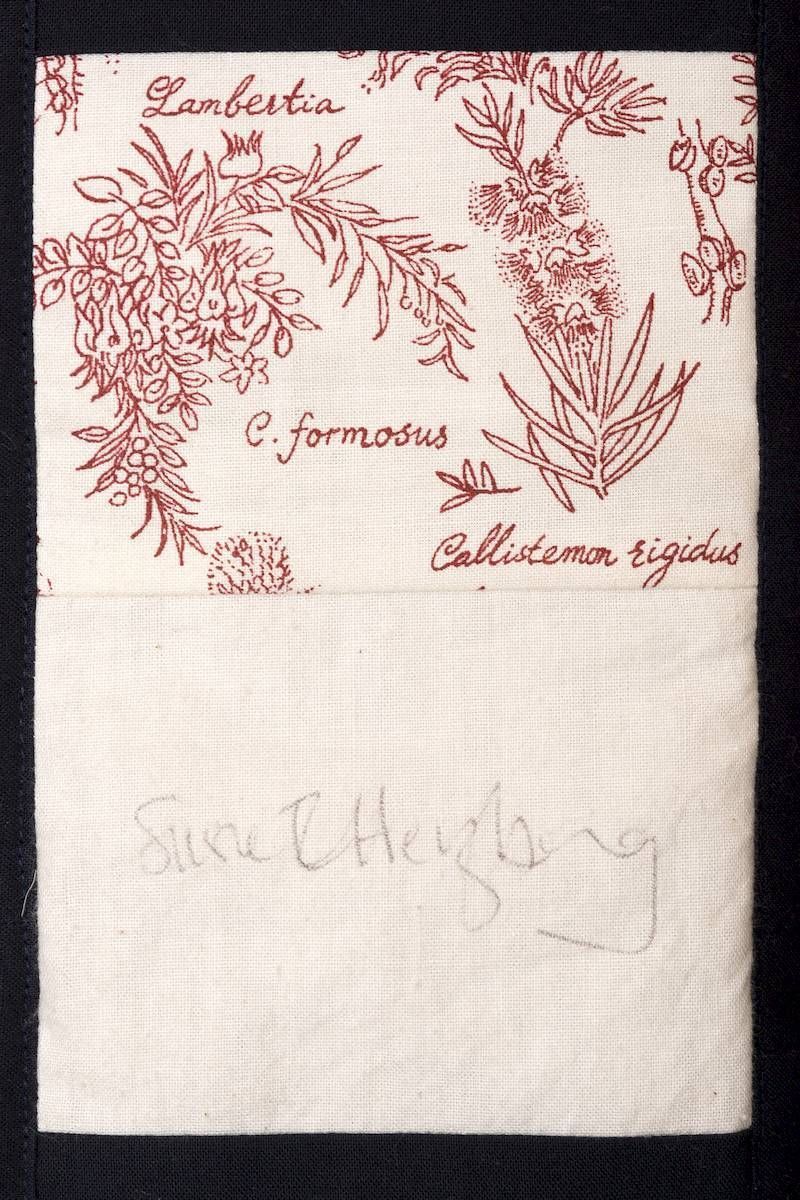 Lambertia
C. formosus
Callistemon rigidus
Susie E Herzberg